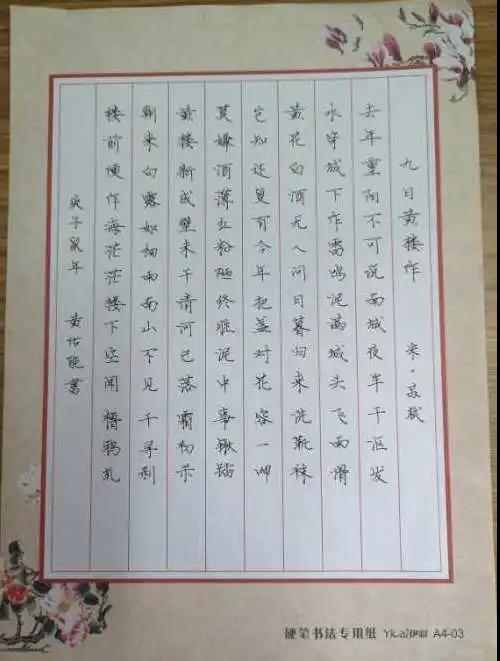 九日黄楼作 宋·苏轼
去年重阳不可说南城夜半千沤发
水穿城下作雷鸣泥满城头飞雨滑
黄花白酒无人问日暮归来洗靴袜
岂知还复有今年把盏对花容一呷
莫嫌酒薄红粉陋终胜泥中事锹锸
黄楼新成壁未干清河已落霜初杀
朝来白露如细雨南山不见千寻刹
楼前便作海茫茫楼下空闻橹鸦轧
庚子鼠年 黄 书
硬笔书法专用纸 A4-03